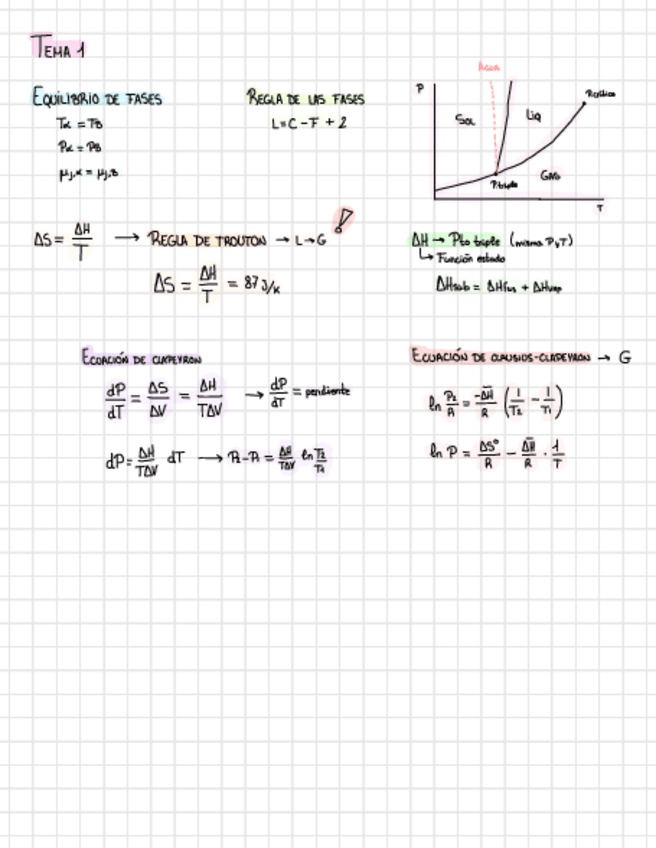 TEMA 1
EQUILIBRIO DE FASES
Tα = Tβ
Pα = Pβ
μj,α = μj,β
REGLA DE LAS FASES
L = C - F + 2
AGUA
P
SOL
LIQ
GAS
P.crítico
P.triple
T
ΔS = ΔH/T → REGLA DE TROUTON → L→G !
ΔS = ΔH/T = 87 J/K
ΔH → Pto triple (misma P y T)
↳ Función estado
ΔHsub = ΔHfus + ΔHvap
ECUACIÓN DE CLAPEYRON
dP/dT = ΔS/ΔV = ΔH/TΔV → dP/dT = pendiente
dP = ΔH/TΔV dT → P2-P1 = ΔH/ΔV ln T2/T1
ECUACIÓN DE CLAUSIUS-CLAPEYRON → G
ln P2/P1 = -ΔH/R (1/T2 - 1/T1)
ln P = ΔS°/R - ΔH/R · 1/T